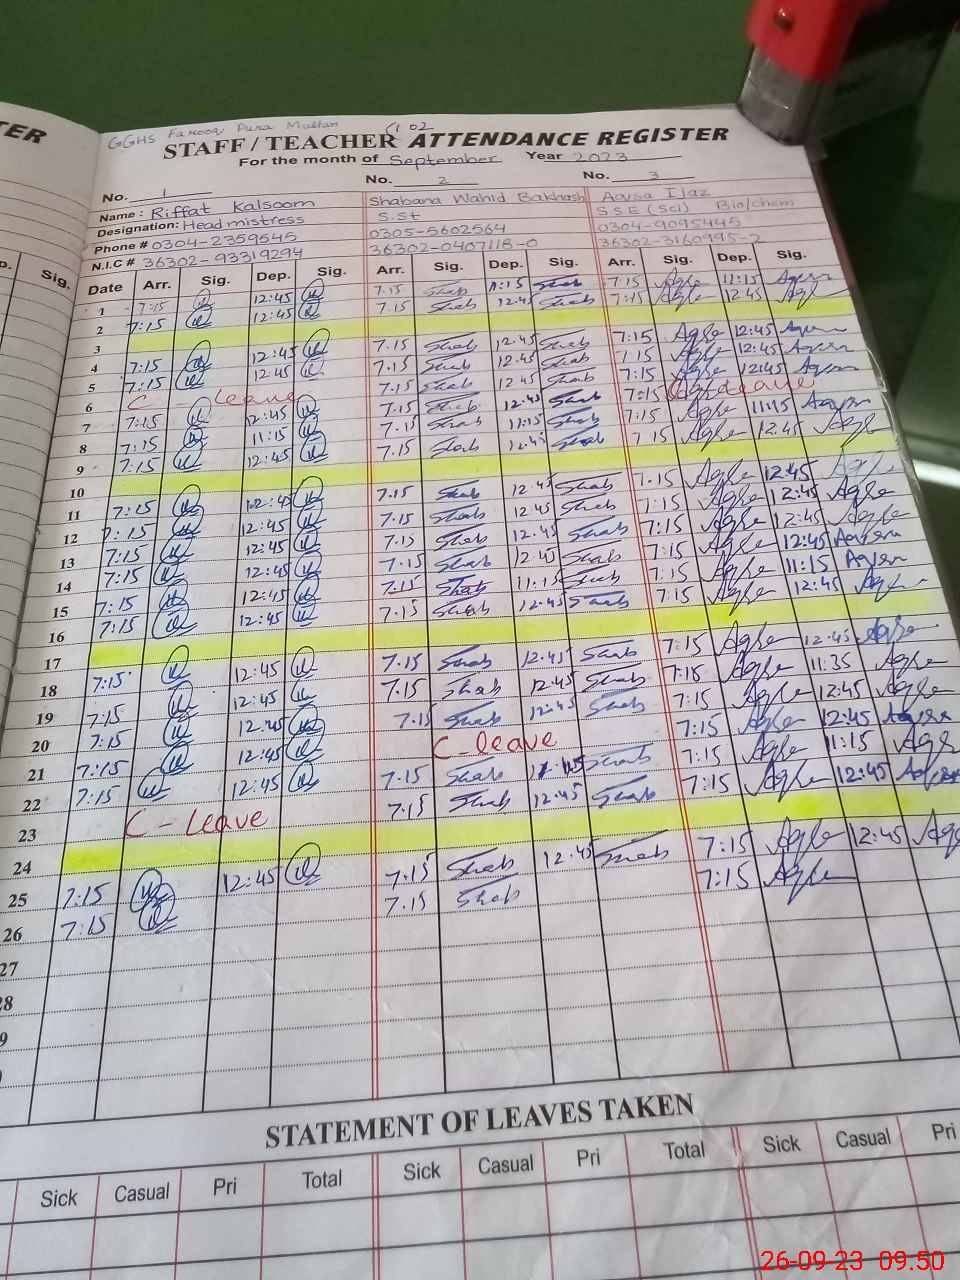 TER
GGHS Farooq Pura Multan
STAFF / TEACHER ATTENDANCE REGISTER
For the month of September Year 2023
No. 1 No. 2 No. 3
Name: Riffat Kalsoom Shabana Wahid Bakhsh
Designation: Headmistress S.St SSE (Sci) Bio/chem
Phone # 0304-2359545 0305-5602564 0304-9095445
N.I.C # 36302-93319294 36302-0407118-0 36302-3160995-2
Sig. Date Arr. Sig. Dep. Sig. Arr. Sig. Dep. Sig. Arr. Sig. Dep. Sig.
1 7:15 12:45 7.15 Shab 11:15 Shab 7:15 11:15
2 7:15 12:45 7.15 Shab 12:45 Shab 7:15 12:45
3
4 7:15 12:45 7.15 Shab 12:45 Shab 7:15 12:45
5 7:15 12:45 7.15 Shab 12:45 Shab 7:15 12:45
6 C leave 7.15 Shab 12:45 Shab 7:15 12:45
7 7:15 12:45 7.15 Shab 12:45 Shab 7:15 leave
8 7:15 11:15 7.15 Shab 11:15 Shab 7:15 11:15
9 7:15 12:45 7.15 Shab 12:45 Shab 7:15 12:45
10
11 7:15 12:45 7.15 Shab 12:45 Shab 7:15 12:45
12 7:15 12:45 7.15 Shab 12:45 Shab 7:15 12:45
13 7:15 12:45 7.15 Shab 12:45 Shab 7:15 12:45
14 7:15 12:45 7.15 Shab 12:45 Shab 7:15 12:45
15 7:15 12:45 7.15 Shab 11:15 Shab 7:15 11:15
16 7:15 12:45 7.15 Shab 12:45 Shab 7:15 12:45
17
18 7:15 12:45 7.15 Shab 12:45 Shab 7:15 12:45
19 7:15 12:45 7.15 Shab 12:45 Shab 7:15 11:35
20 7:15 12:45 7.15 Shab 12:45 Shab 7:15 12:45
21 7:15 12:45 C-leave 7:15 12:45
22 7:15 12:45 7.15 Shab Shab 7:15 11:15
23 C-leave 7.15 Shab 12:45 Shab 7:15 12:45
24
25 7:15 12:45 7.15 Shab 12:45 Shab 7:15 12:45
26 7:15 7.15 Shab 7:15
27
28
9
STATEMENT OF LEAVES TAKEN
Sick Casual Pri Total Sick Casual Pri Total Sick Casual Pri
26-09-23 09:50